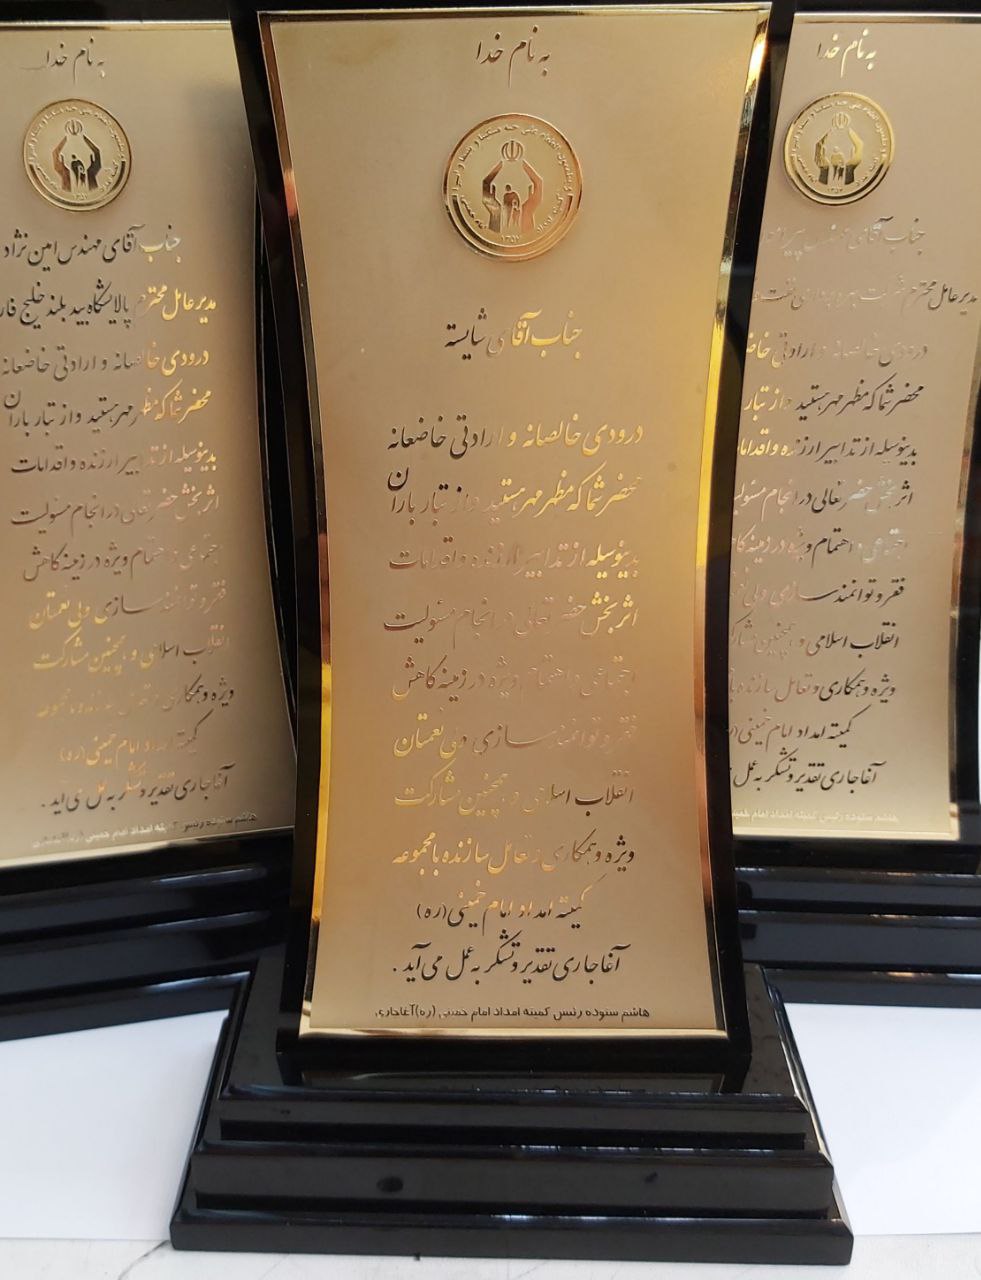 به نام خدا
جناب آقای شایسته
درودی خالصانه و ارادتی خاضعانه
محضر شما که مظهر مهر هستید و از تبار باران
بدینوسیله از تدابیر ارزنده و اقدامات
اثر بخش حضرتعالی در انجام مسئولیت
اجتماعی و اهتمام ویژه در زمینه کاهش
فقر و توانمندسازی ولی نعمتان
انقلاب اسلامی و همچنین مشارکت
ویژه و همکاری و تعامل سازنده با مجموعه
کمیته امداد امام خمینی (ره)
آغاجاری تقدیر و تشکر به عمل می آید .
هاشم ستوده رئس کمیته امداد امام خمینی (ره) آغاجاری
به نام خدا
جناب آقای مهندس امین نژاد
مدیر عامل محترم پالایشگاه بید بلند خلیج فار
درودی خالصانه و ارادتی خاضعانه
محضر شما که مظهر مهر هستید و از تبار باران
بدینوسیله از تدابیر ارزنده و اقدامات
اثر بخش حضرتعالی در انجام مسئولیت
اجتماعی و اهتمام ویژه در زمینه کاهش
فقر و توانمندسازی ولی نعمتان
انقلاب اسلامی و همچنین مشارکت
ویژه و همکاری و تعامل سازنده با مجموعه
کمیته امداد امام خمینی (ره)
آغاجاری تقدیر و تشکر به عمل می آید .
هاشم ستوده رئس کمیته امداد امام خمینی (ره)
به نام خدا
جناب آقای مهندس
مدیر عامل محترم شرکت بهره برداری نفت
درودی خالصانه و ارادتی
محضر شما که مظهر مهر هستید و از تبار
بدینوسیله از تدابیر ارزنده و اقدامات
اثر بخش حضرتعالی در انجام
اجتماعی و اهتمام ویژه در زمینه
فقر و توانمندسازی ولی
انقلاب اسلامی و همچنین
ویژه و همکاری و تعامل سازنده
کمیته امداد امام خمینی
آغاجاری تقدیر و تشکر به عمل
هاشم ستوده رئس کمیته امداد امام خمینی